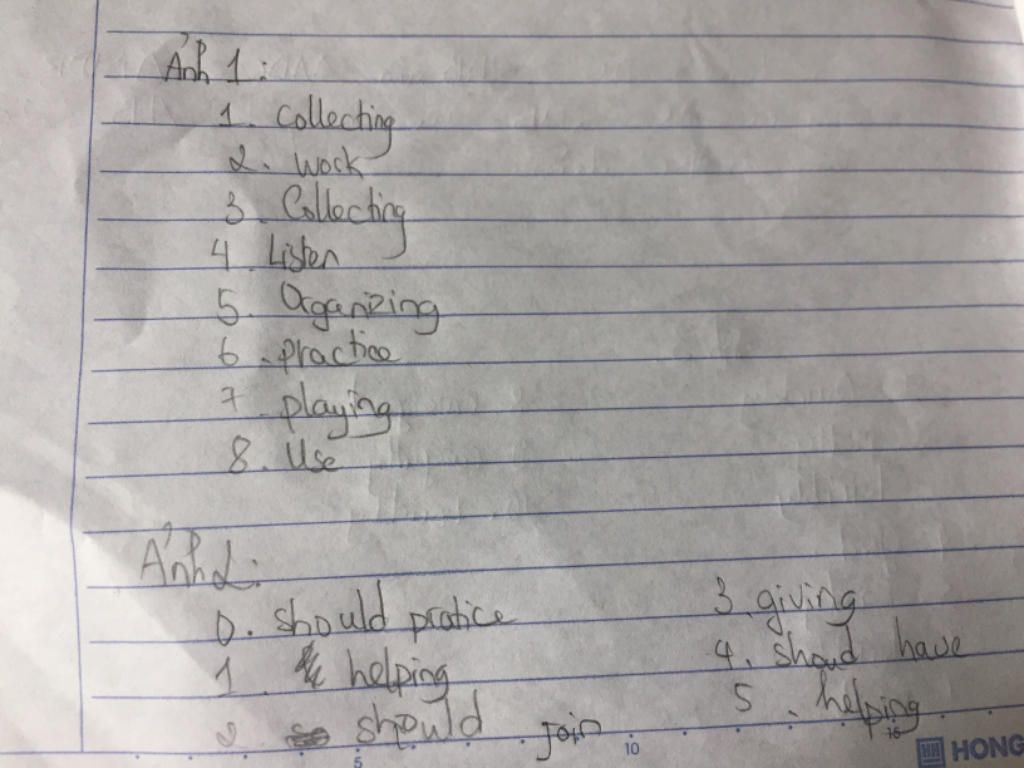 Ảnh 1:
1. Collecting
2. Work
3. Collecting
4. Listen
5. Organizing
6. practice
7. playing
8. Use
Ảnh 2:
0. should pratice
3. giving
1. helping
4. shoud have
2. should join
5. helping
5 10 15
HH HONG